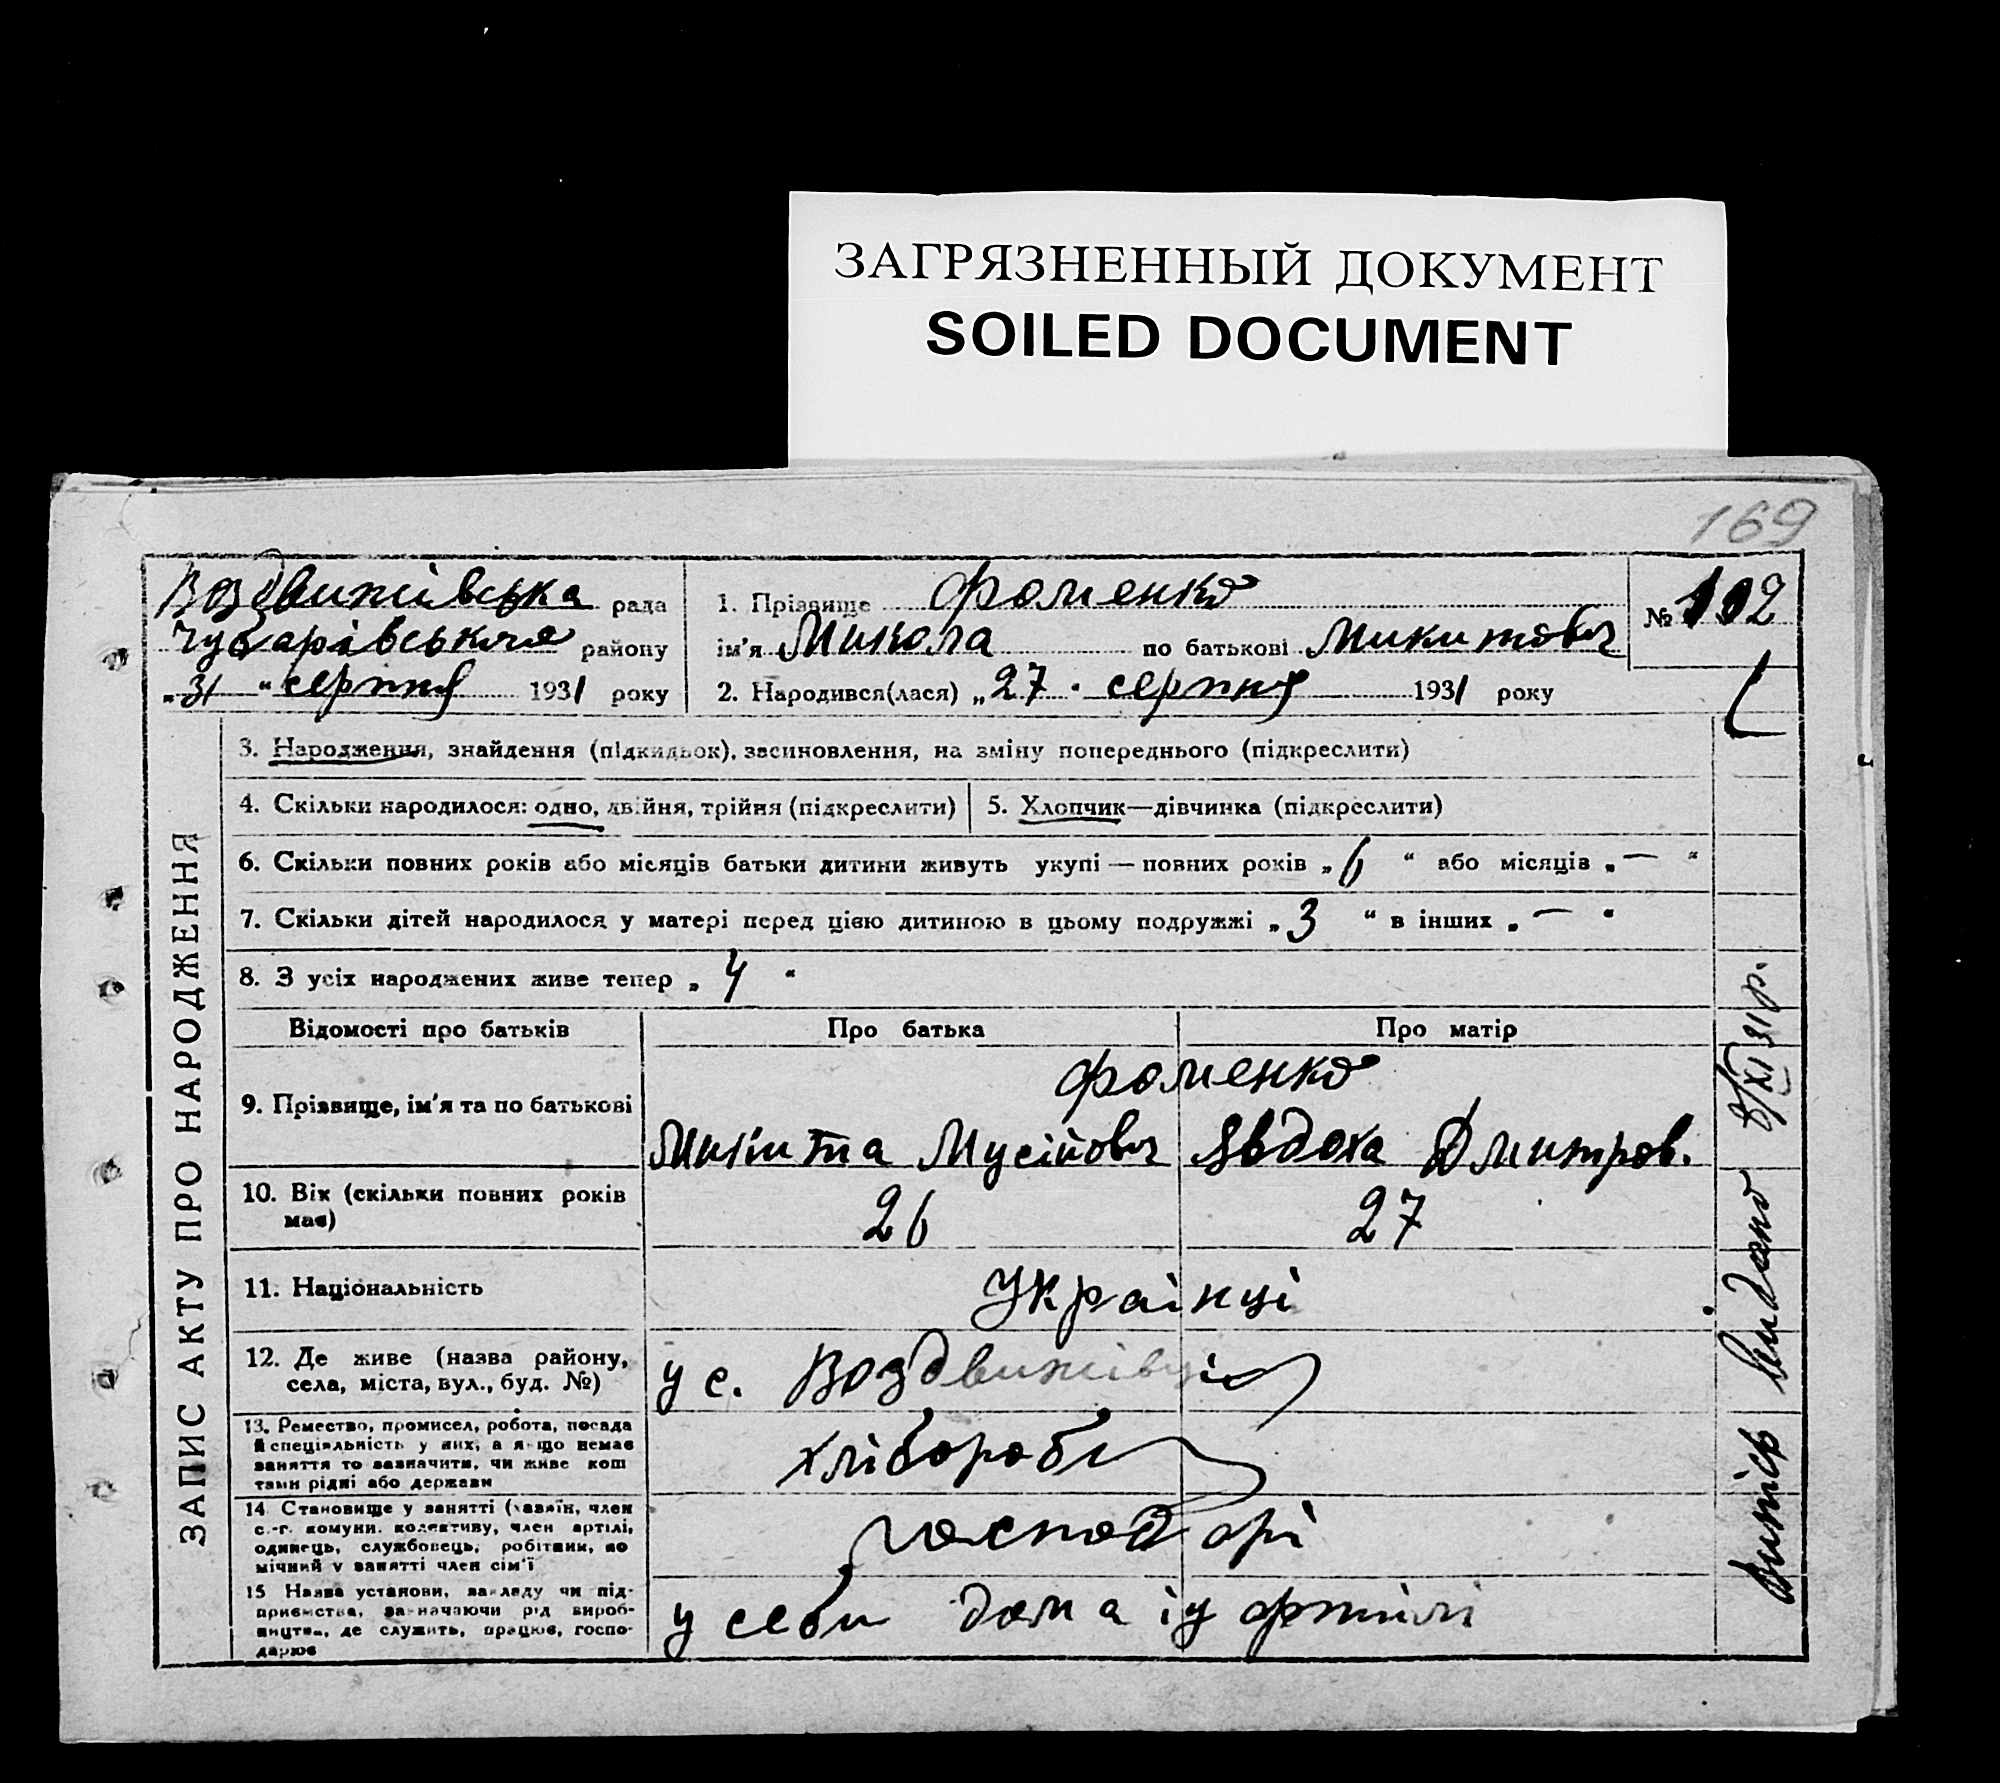 ЗАГРЯЗНЕННЫЙ ДОКУМЕНТ
SOILED DOCUMENT
169
Воздвижівська рада
Чубарівського району
„31“ серпня 1931 року
1. Прізвище Фоменко
ім'я Микола по батькові Микитович
2. Народився(лася) „27" серпня 1931 року
№ 112
ЗАПИС АКТУ ПРО НАРОДЖЕННЯ
3. Народження, знайдення (підкидьок), засиновлення, на зміну попереднього (підкреслити)
4. Скільки народилося: одно, двійня, трійня (підкреслити)
5. Хлопчик—дівчинка (підкреслити)
6. Скільки повних років або місяців батьки дитини живуть укупі — повних років „6“ або місяців „—“
7. Скільки дітей народилося у матері перед цією дитиною в цьому подружжі „3“ в інших „—"
8. З усіх народжених живе тепер „4“
Відомості про батьків
Про батька
Про матір
9. Прізвище, ім'я та по батькові
Фоменко
Микита Мусійович
Явдоха Дмитров.
10. Вік (скільки повних років
має)
26
27
11. Національність
Українці
12. Де живе (назва району,
села, міста, вул., буд. №)
у с. Воздвижівці
13. Ремество, промисел, робота, посада
й спеціяльність у них, а якщо немає
заняття то зазначити, чи живе кош
тами рідні або держави
хлібороби
14 Становище у занятті (хазяїн, член
с.-г. комуни. колективу, член артілі,
одинець, службовець, робітник, по
мічний у занятті член сім'ї
господарі
15 Назва установи, закладу чи під-
приємства, зазначаючи рід вироб-
ництва, де служить, працює, госпо-
дарює
у себи дома і у артілі
Витяг видано 8/XI 31 р.